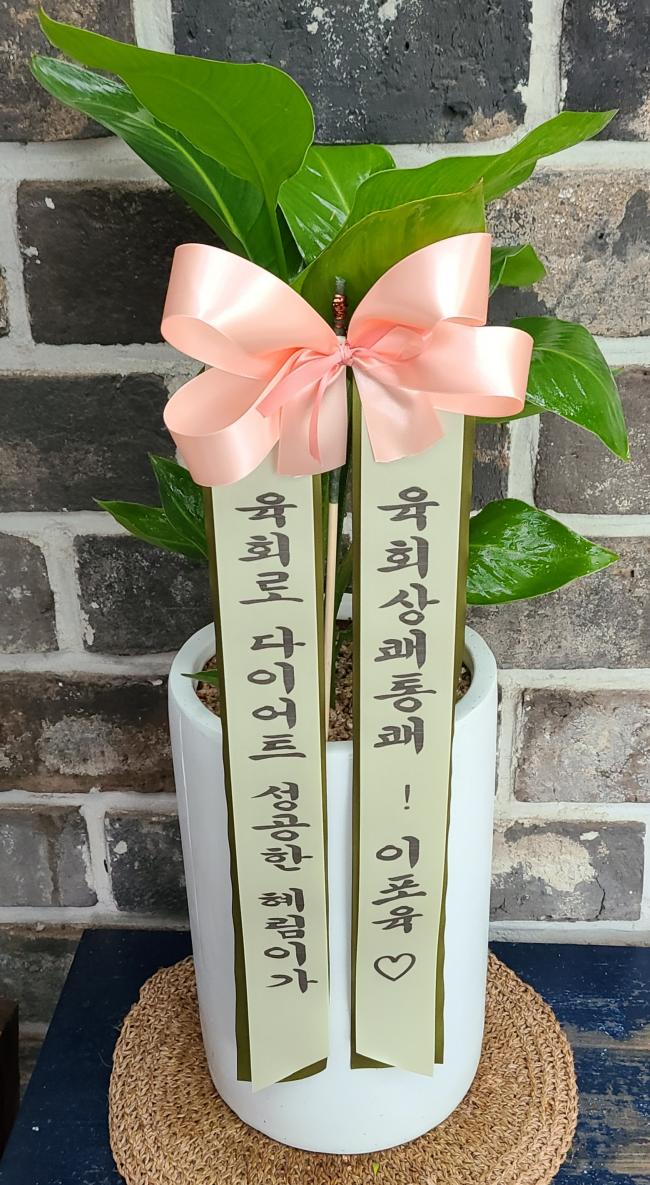 육회로 다이어트 성공한 혜림이가
육회상쾌통쾌 ! 이포육 ♡